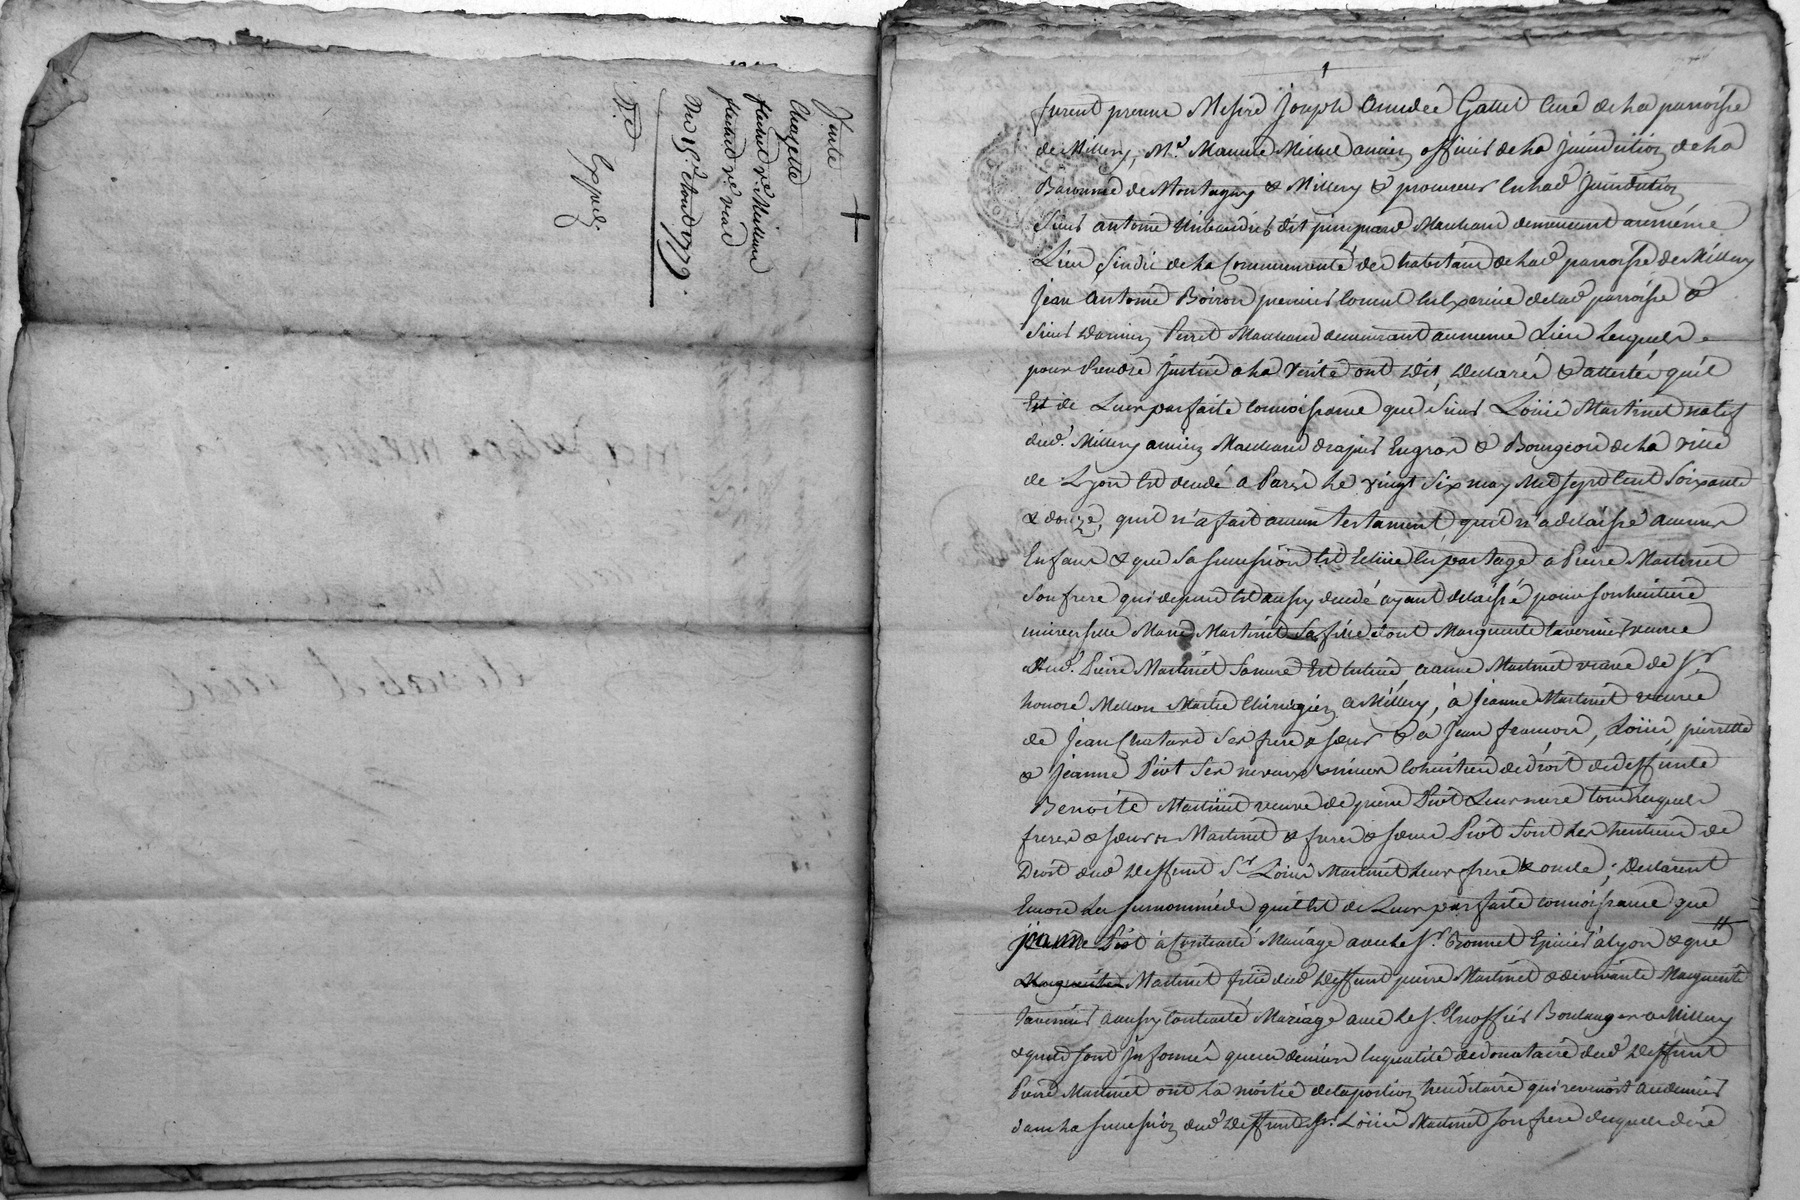 Vente
Chazette
Du 15e aoust 1779.
Expédié
furent presens Messire Joseph Amedée Gattel Curé de la parroisse
de Millery, Me Maurice Michel ancien officier de la Jurisdiction de la
Baronnie de Montagny & Millery & procureur en lad Jurisdiction
Sieur antoine dit pinguard Marchand demeurant au même
Lieu Sindic de la Communauté des habitans de lad parroisse de Millery
Jean Antoine Boiron premier Consul en Exercice de lad parroisse &
Sieur Damien Perret Marchand demeurant au meme Lieu Lesquels
pour Rendre Justice a la Verité ont Dit, Declaré & attesté quil
Est de Leur parfaite Connoissance que Sieur Loüis Martinet natif
dud. Millery ancien Marchand drapier En gros & Bourgeois de la Ville
de Lyon est decedé a Paris Le vingt Six may Mil Sept Cent Soixante
& douze, quil n'a fait aucun testament, quil n'a delaissé aucuns
Enfans & que Sa Succession est Echue En partage a Pierre Martinet
Son frere qui depuis est aussy decedé ayant delaissé pour Son heritiere
universelle Marie Martinet Sa fille dont Marguerite tavernier veuve
dud. Pierre Martinet Sa mere Est tutrice, a anne Martinet veuve de Sr
honoré Mellon Maitre Chirurgien a Millery, à Jeanne Martinet veuve
de Jean Chatard Ses frere & Sœurs & a Jean francois, Loüis, pierrette
& Jeanne Piot Ses neveux & nieces Cohéritiers de droit de deffunte
Benoite Martinet veuve de pierre Piot Leur mere tous Lesquels
freres & Sœurs Martinet & freres & Sœurs Piot Sont Les heritiers de
Droit dud Deffunt Sr Loüis Martinet Leur frere & oncle; Declarent
Encore Les Surnommés quil est de Leur parfaite Connoissance que
jeanne Piot à Contracté Mariage avec Le Sr. Bonnet Epicier à Lyon & que
Marguerite Martinet fille dud Deffunt pierre Martinet & de vivante Marguerite
tavernier a aussy Contracté Mariage avec Le Sr. Boulanger a Millery
& quils sont Informés que ces derniers En qualité de donataire dud Deffunt
Pierre Martinet ont La moitié de la portion hereditaire qui revenoit au dernier
dans La Succession dud Deffunt Sr. Loüis Martinet Son frere desquels dire